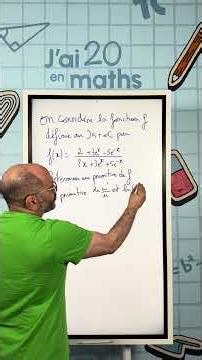 J'ai 20
en maths
On considère la fonction f
définie sur ]0;+∞[ par
f(x) = 2 + 3eˣ - 5e⁻ˣ / 2x + 3eˣ + 5e⁻ˣ
Déterminer une primitive de f
primitive de u'/u et ln